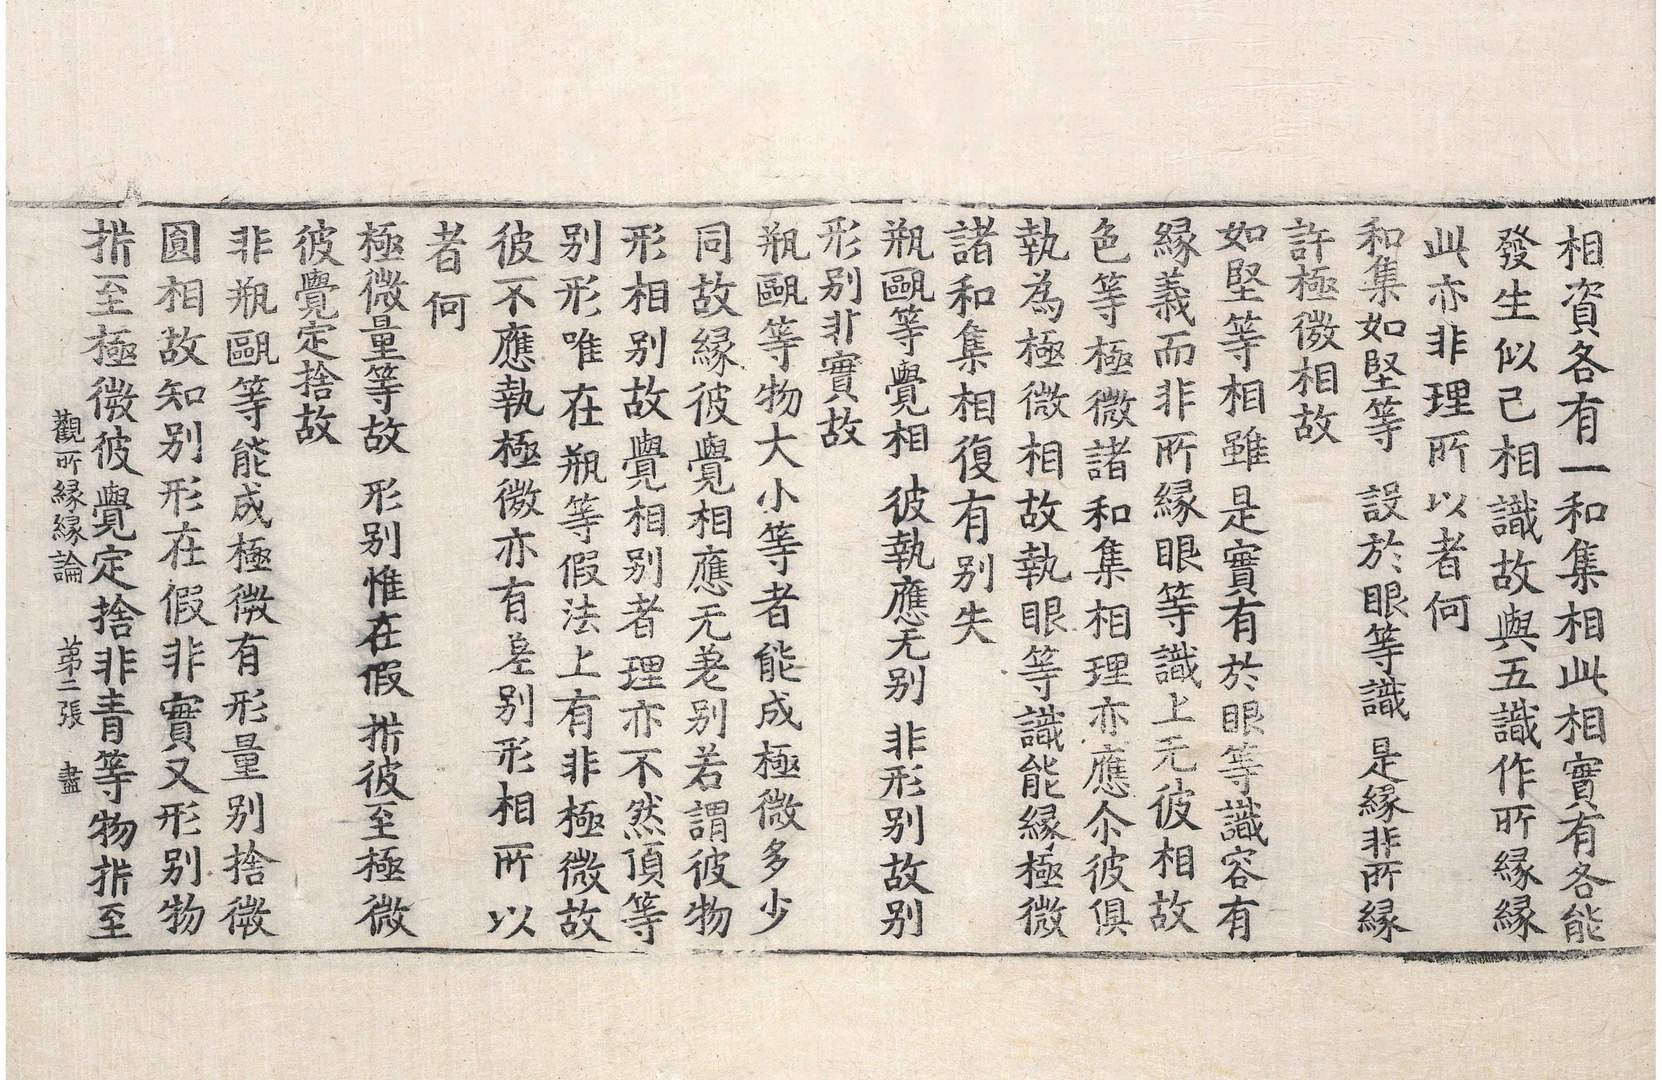 相資各有一和集相此相實有各能
發生似己相識故與五識作所緣緣
此亦非理所以者何
和集如堅等　設於眼等識　是緣非所緣
許極微相故
如堅等相雖是實有於眼等識容有
緣義而非所緣眼等識上无彼相故
色等極微諸和集相理亦應尒彼俱
執為極微相故執眼等識能緣極微
諸和集相復有別失
瓶甌等覺相　彼執應无別　非形別故別
形別非實故
瓶甌等物大小等者能成極微多少
同故緣彼覺相應无差別若謂彼物
形相別故覺相別者理亦不然頂等
別形唯在瓶等假法上有非極微故
彼不應執極微亦有差別形相所以
者何
極微量等故　形別惟在假　析彼至極微
彼覺定捨故
非瓶甌等能成極微有形量別捨微
圓相故知別形在假非實又形別物
析至極微彼覺定捨非青等物析至
觀所緣緣論　第二張　盡